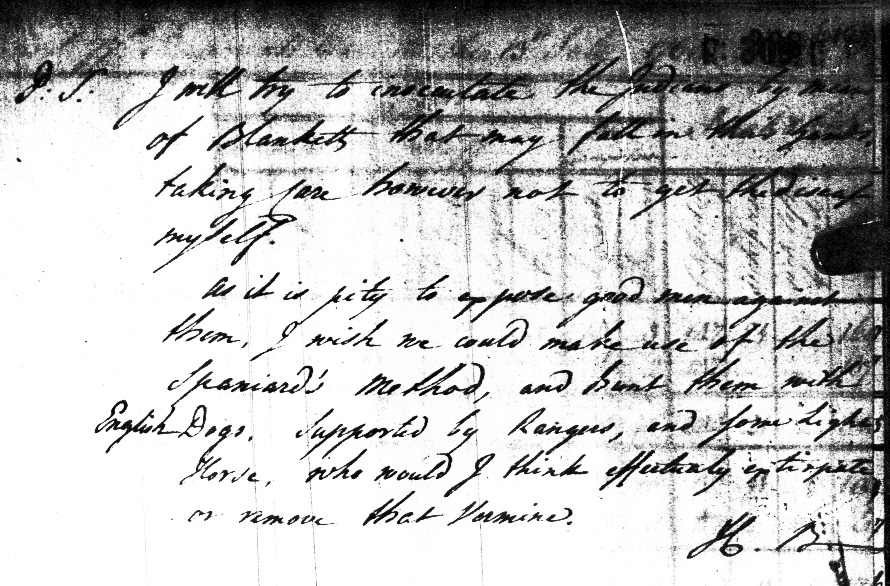 P. S. I will try to inocculate the Indians by mean
of Blanketts that may fall in their hands,
taking care however not to get the diseas
myself.
As it is pity to oppose good men against
them, I wish we could make use of the
Spaniard's Method, and hunt them with
English Dogs. Supported by Rangers, and some Light
Horse, who would I think effectualy extirpate
or remove that Vermine.
H. B.